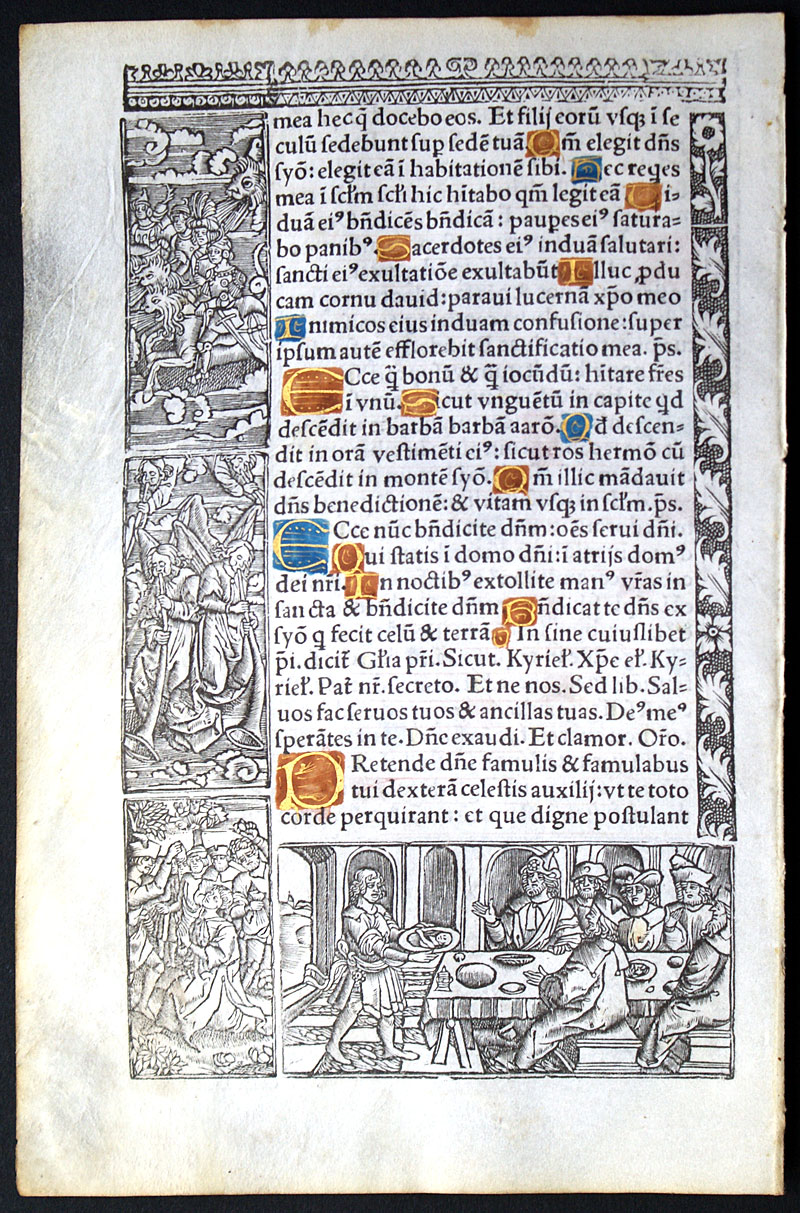 mea hec q̃ docebo eos. Et filij eorū vſqꝫ ī ſe
culū ſedebunt ſup ſedē tuā Qm̄ elegit dn̄s
ſyō: elegit eā ī habitationē ſibi. Hec reqes
mea ī ſcl̄m ſcl̄i hic hītabo qm̄ legit eā Ui-
duā eiꝰ bn̄dicēs bn̄dicā: paupes eiꝰ ſatura-
bo panibꝰ Sacerdotes eiꝰ induā ſalutari:
ſancti eiꝰ exultatiōe exultabūt Illuc ꝓdu
cam cornu dauid: paraui lucernā xp̄o meo
Inimicos eius induam confuſione: ſuper
ipſum autē efflorebit ſanctificatio mea. p̄s.
ECce q̃ bonū & q̃ iocūdū: hītare fr̄es
i vnū. Sicut vnguētū in capite qd
deſcēdit in barbā barbā aarō. Qd̄ deſcen-
dit in orā veſtimēti eiꝰ: ſicut ros hermō cū
deſcēdit in montē ſyō. Qm̄ illic mādauit
dn̄s benedictionē: & vitam vſqꝫ in ſcl̄m. p̄s.
ECce nūc bn̄dicite dn̄m: oēs ſerui dn̄i.
Qui ſtatis ī domo dn̄i: ī atrijs domꝰ
dei nr̄i. In noctibꝰ extollite manꝰ vr̄as in
ſancta & bn̄dicite dn̄m Bn̄dicat te dn̄s ex
ſyō q fecit celū & terrā In fine cuiuſlibet
p̄i. dicit̄ Gl̄ia pr̄i. Sicut. Kyriel̄. Xp̄e el̄. Ky-
riel̄. Pat̄ nr̄. ſecreto. Et ne nos. Sed lib. Sal-
uos fac ſeruos tuos & ancillas tuas. Deꝰ meꝰ
ſperātes in te. Dn̄e exaudi. Et clamor. Or̄o.
PRetende dn̄e famulis & famulabus
tui dexterā celeſtis auxilij: vt te toto
corde perquirant: et que digne poſtulant